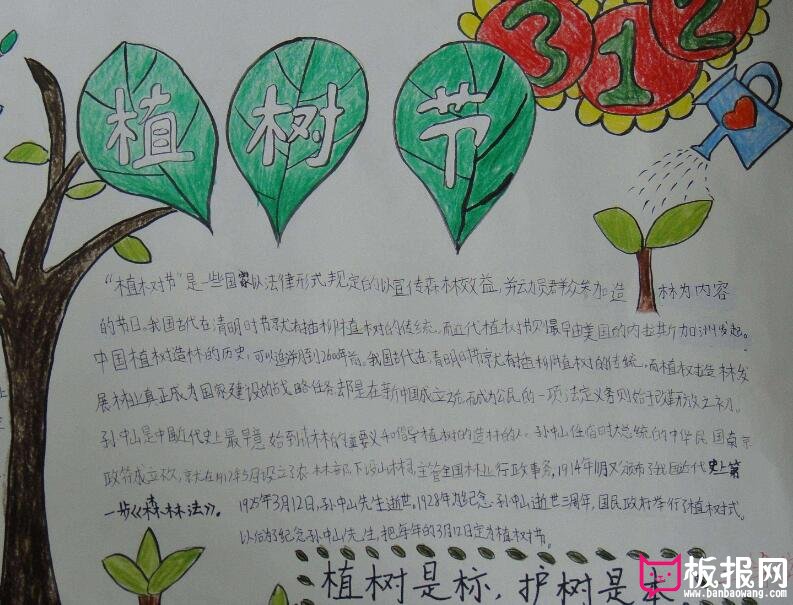 植树节
312
“植树节”是一些国家以法律形式规定的以宣传森林效益,并动员群众参加造 林为内容
的节日。我国古代在清明时节就有插柳植树的传统,而近代植树节则最早由美国的内布拉斯加州发起。
中国植树造林的历史,可以追溯到2600年前。我国古代在清明时节就有插柳植树的传统,而植树造林发
展林业真正成为国家建设的战略任务却是在新中国成立之后,成为公民的一项法定义务则始于改革开放之初。
孙中山是中国近代史上最早意识到森林的重要意义和倡导植树的造林的人。孙中山任临时大总统的中华民国南京
政府成立不久,就在1912年5月设立了农林部,下设山林司,主管全国林业行政事务,1914年11月又颁布了我国近代史上第
一步《森林法》。
1925年3月12日,孙中山先生逝世。1928年为纪念孙中山逝世三周年,国民政府举行了植树式。
以后为了纪念孙中山先生,把每年的3月12日定为植树节。
植树是标,护树是本
板报网
www.banbaowang.com